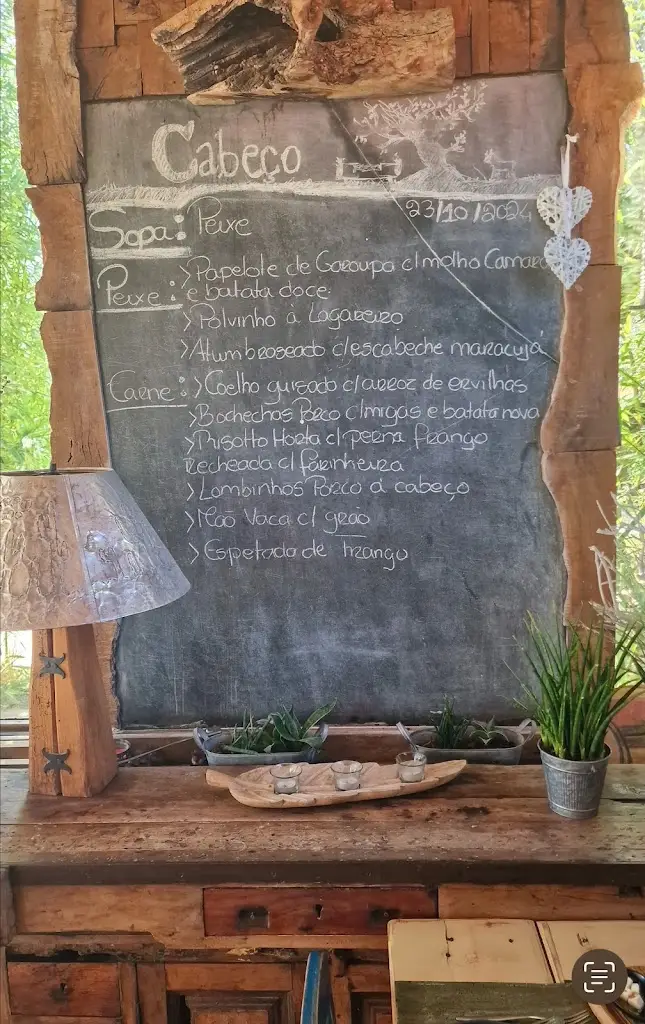 Cabeço
23/10/2024
Sopa: Peixe
Peixe: >Papelote de Garoupa c/molho Camarão
e batata doce
>Polvinho á Lagareiro
>Atum braseado c/escabeche maracujá
Carne: >Coelho guisado c/arroz de ervilhas
>Bochechas Porco c/migas e batata nova
>Risotto Horta c/ perna frango
Recheada c/ farinheira
>Lombinhos Porco á cabeço
>Mão Vaca c/ grão
>Espetada de frango